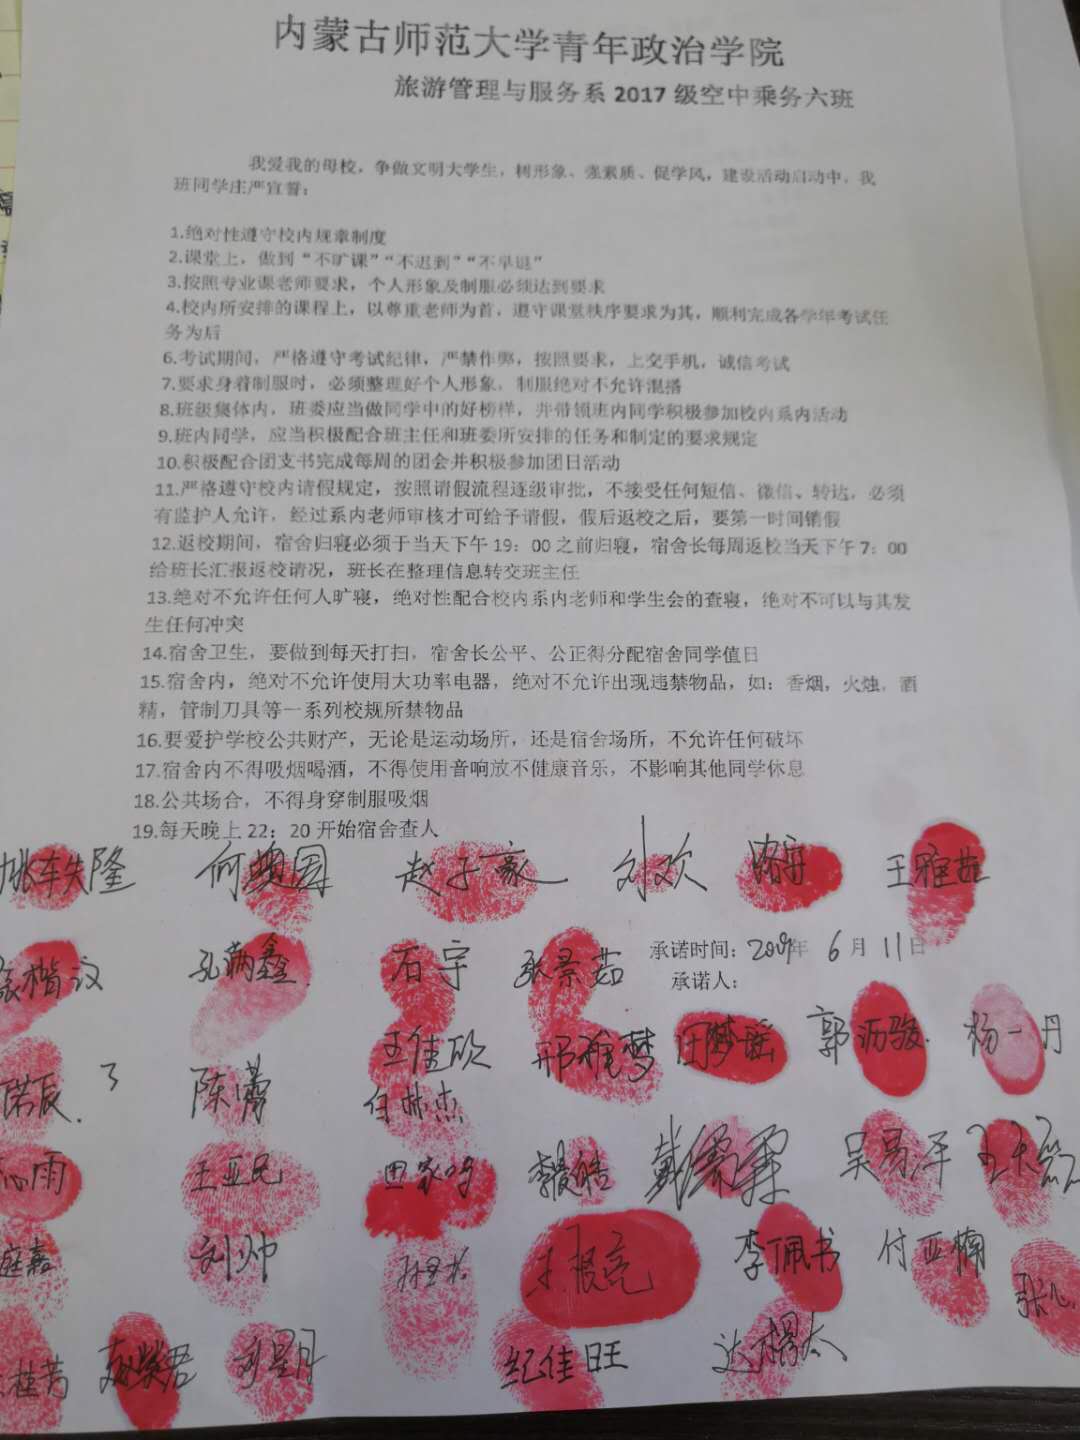 内蒙古师范大学青年政治学院
旅游管理与服务系2017级空中乘务六班
我爱我的母校，争做文明大学生，树形象、强素质、促学风，建设活动启动中，我
班同学庄严宣誓：
1.绝对性遵守校内规章制度
2.课堂上，做到“不旷课”“不迟到”“不早退”
3.按照专业课老师要求，个人形象及制服必须达到要求
4.校内所安排的课程上，以尊重老师为首，遵守课堂秩序要求为其，顺利完成各学年考试任
务为后
6.考试期间，严格遵守考试纪律，严禁作弊，按照要求，上交手机，诚信考试
7.要求身着制服时，必须整理好个人形象，制服绝对不允许混搭
8.班级集体内，班委应当做同学中的好榜样，并带领班内同学积极参加校内系内活动
9.班内同学，应当积极配合班主任和班委所安排的任务和制定的要求规定
10.积极配合团支书完成每周的团会并积极参加团日活动
11.严格遵守校内请假规定，按照请假流程逐级审批，不接受任何短信、微信、转达，必须
有监护人允许，经过系内老师审核才可给予请假，假后返校之后，要第一时间销假
12.返校期间，宿舍归寝必须于当天下午19：00之前归寝，宿舍长每周返校当天下午7：00
给班长汇报返校请况，班长在整理信息转交班主任
13.绝对不允许任何人旷寝，绝对性配合校内系内老师和学生会的查寝，绝对不可以与其发
生任何冲突
14.宿舍卫生，要做到每天打扫，宿舍长公平、公正得分配宿舍同学值日
15.宿舍内，绝对不允许使用大功率电器，绝对不允许出现违禁物品，如：香烟，火烛，酒
精，管制刀具等一系列校规所禁物品
16.要爱护学校公共财产，无论是运动场所，还是宿舍场所，不允许任何破坏
17.宿舍内不得吸烟喝酒，不得使用音响放不健康音乐，不影响其他同学休息
18.公共场合，不得身穿制服吸烟
19.每天晚上22：20开始宿舍查人
赵子豪 刘欢 王雅茹
承诺时间：2019年6月11日
承诺人：
石宇 张景茹
王佳欣 邢雅梦 汪梦谣 郭沥骏 杨一丹
王亚民 田家鸣 吴易泽
刘帅 李佩书 付亚楠
纪佳旺 达楞太